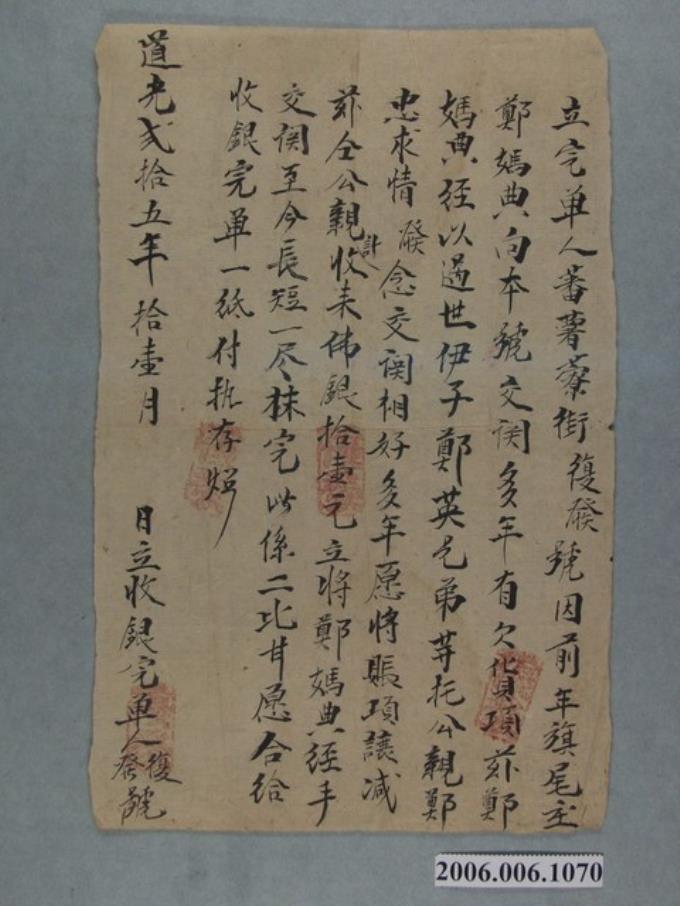 立完單人蕃薯藔街復發號因前年旗尾庄
鄭媽典向本號交関多年有欠貨項玆鄭
媽典經以過世伊子鄭英兄弟芽托公親鄭
忠求情發念交関相好多年愿將賬項讓减
玆仝公親計收来佛銀拾壹元立將鄭媽典經手
交関至今長短一尽抹完此係二比甘愿合給
收銀完單一紙付执存炤
道光弍拾五年拾壹月 日立收銀完單人復發號
2006.006.1070